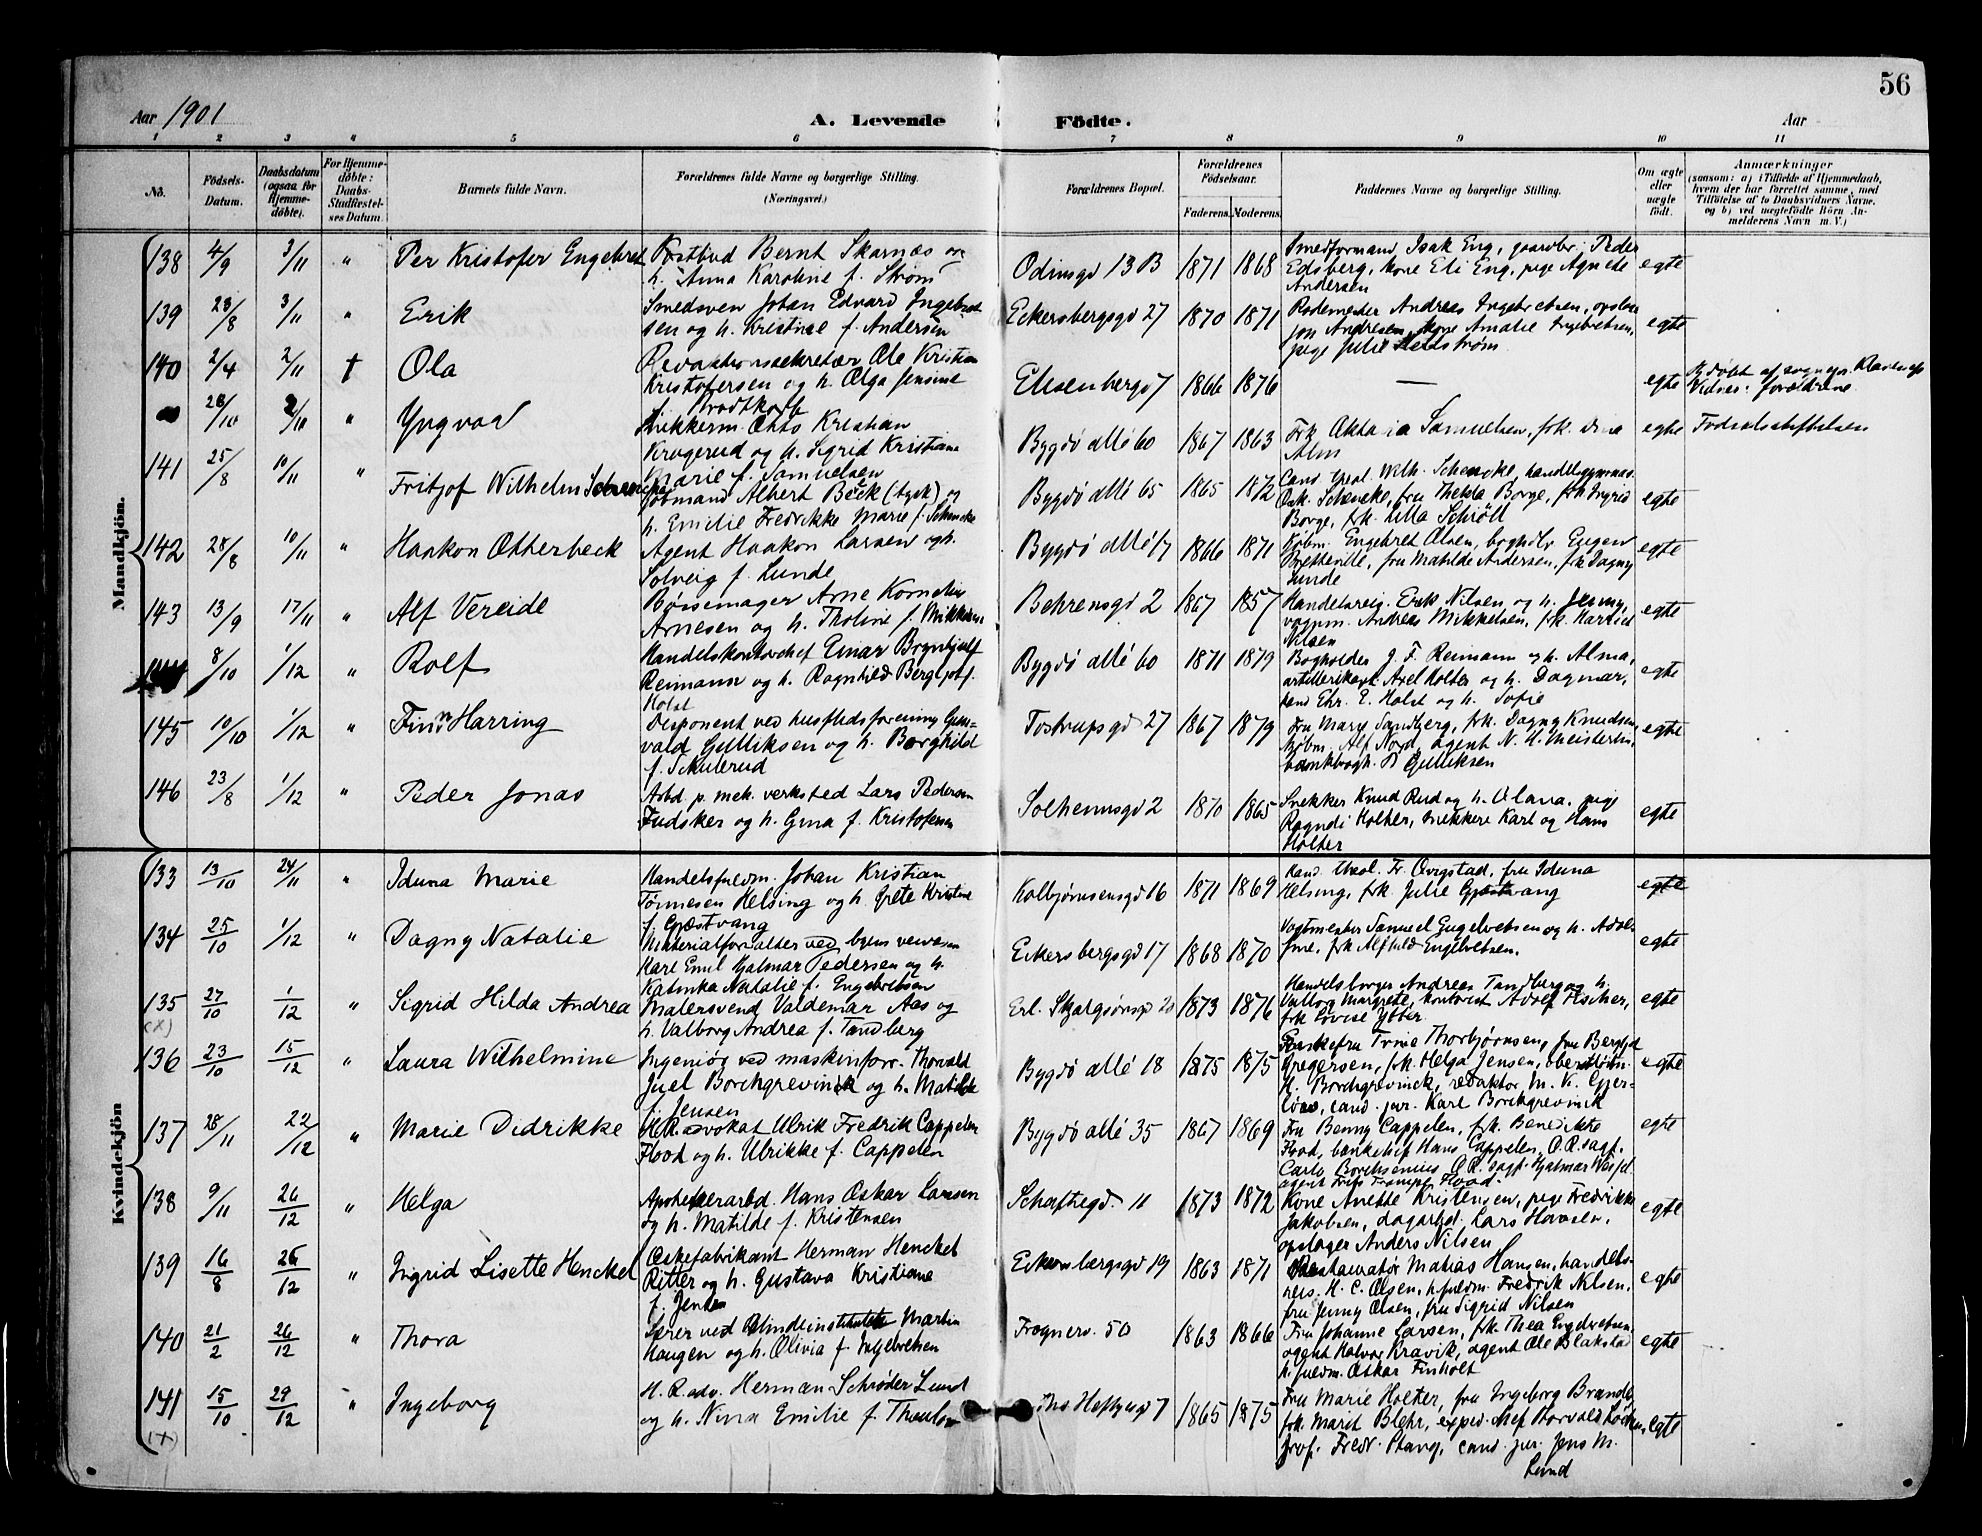 56
Aar 1901
A. Levende Födte.
Aar
1 2 3 4 5 6 7 8 9 10 11
No. Födsels-Datum. Daabsdatum (ogsaa for Hjemmedöbte). For Hjemmedöbte: Daabs-Stadfæstelses Datum. Barnets fulde Navn. Forældrenes fulde Navne og borgerlige Stilling. (Næringsvei.) Forældrenes Bopæl. Forældrenes Födselsaar. Faderens. Moderens. Faddernes Navne og borgerlige Stilling. Om ægte eller uægte födt. Anmærkninger (saasom: a) i Tilfælde af Hjemmedaab, hvem der har forrettet samme, med Tilföielse af to Daabsvidners Navne, og b) ved uægtefödte Börn Anmelderens Navn m. V.)
Mandkjön.
138 4/9 3/11 " Per Kristofer Engebret Postbud Bernt Skarnæs og h. Anna Karoline f. Strøm Odinsgd 13 B 1871 1868 Smedformand Isak Eng, gaardbr. Peder Edsberg, kone Eli Eng, pige Agnete Andersen egte
139 23/8 3/11 " Erik Smedsven Johan Edvard Ingebretsen og h. Kristine f. Andersen Eckersbergsgd 27 1870 1871 Rodemester Andreas Ingebretsen, kone Amalie Ingebretsen, pige Julie egte
140 2/4 2/11 † Ola Redaktionssekretær Ole Kristian Kristofersen og h. Olga Jensine f. Brodtkorb Elisenbergv 7 1866 1876 — egte
28/10 2/10 " Yngvar Snikkerm. Otto Kristian Krogerud og h. Sigrid Kristiane Marie f. Samuelsen Bygdø allé 60 1867 1863 Frk Oktavia Samuelsen, frk. Alm egte Fødselsstiftelsen
141 25/8 10/11 " Fritjof Wilhelm Schencke Kjøbmand Albert Beck (tysk) og h. Emilie Fredrikke Marie f. Schencke Bygdø allé 65 1865 1872 Cand. theol. Wilh. Schencke, Osk. Schencke, fru Thekla Borge, frk Ingrid Borge, frk. Lilla Schiøtt egte
142 28/8 10/11 " Haakon Otterbeck Agent Haakon Larsen og h. Solveig f. Lunde Bygdø allé 17 1866 1871 Kjøbm. Engebret Olsen, bogholder Eugen Bretteville, fru Matilde Andersen, frk Dagny Lunde egte
143 13/9 17/11 " Alf Vereide Børsemager Arne Kornelius Arnesen og h. Tholine f. Mikkelsen Behrensgd 2 1867 1857 Handelsreis. Erik Nilsen og h. Jenny, vognm. Andreas Mikkelsen, frk. Nilsen egte
144 8/10 1/12 " Rolf Handelskontorchef Einar Brynhjulf Reimann og h. Ragnhild Bergljot f. Holst Bygdø allé 60 1871 1879 Bogholder J. F. Reimann og h. Alma, artillerikapt Axel Holter og h. Dagmar, Chr. E. Holst og h. Sofie egte
145 10/10 1/12 " Finn Harring Disponent ved husflidsforening Gunvald Gulliksen og h. Borghild f. Skulerud Tostrupsgd 27 1867 1879 Fru Mary Sandberg, frk. Dagny Knudsen, kjøbm. Alf Nord, agent N. H. Meisterlin, bankbogh. Gulliksen egte
146 23/8 1/12 " Peder Jonas Arbd p. mek. verksted Lars Pedersen Fudsker og h. Gina f. Kristofersen Solheimsgd 2 1870 1865 Snekker Knud Rud og h. Olava, pige Ragndi Holter, snekkere Karl og Hans Holter egte
Kvindekjön
133 13/10 24/11 " Iduna Marie Handelsfuldm. Johan Kristian Tønnesen Helsing og h. Grete Kristine f. Gjæstvang Kolbjørnsensgd 16 1871 1869 Kand. theol. Fr. Qvigstad, fru Iduna Helsing, frk Julie Gjæstvang egte
134 25/10 1/12 " Dagny Natalie Materialforvalter ved byens veivæsen Karl Emil Hjalmar Pedersen og h. Katinka Natalie f. Engebretsen Eckersbergsgd 17 1868 1870 Vagtmester Samuel Engebretsen og h. Adolfine, frk Alfhild Engebretsen. egte
135 (x) 27/10 1/12 " Sigrid Hilda Andrea Malersvend Valdemar Aas og h. Valborg Andrea f. Tandberg Erl. Skjalgsønsgd 20 1873 1876 Handelsborger Andreas Tandberg og h. Valborg Margrete, kontorist Adolf Fischer, frk Lovise Ytter. egte
136 23/10 15/12 " Laura Wilhelmine Ingeniør ved maskinforr. Thorvald Juel Borchgrevinck og h. Matilde f. Jensen Bygdø allé 18 1875 1875 Enkefru Trine Thorbjørnsen, fru Bergljot Gregersen, frk. Helga Jensen, oberstløitn. H. Borchgrevinck, redaktør M. K. Gjerløw, cand. jur. Karl Borchgrevinck egte
137 28/11 22/12 " Marie Didrikke H.R. advokat Ulrik Fredrik Cappelen Flood og h. Ulrikke f. Cappelen Bygdø allé 35 1867 1869 Fru Benny Cappelen, frk. Benedikte Flood, bankchef Hans Cappelen, O.R.sagf. Carlo Borchsenius, O.R. sagf. Hjalmar Wessel, agent Frits Trampe Flood. egte
138 9/11 26/12 " Helga Apothekerarbd. Hans Oskar Larsen og h. Matilde f. Kristensen Schaftegd. 11 1873 1872 Kone Anette Kristensen, pige Fredrikke Jakobsen, dagarbd. Lars Hansen, opslager Anders Nilsen egte
139 16/8 26/12 " Ingrid Lisette Henckel Æskefabrikant Herman Henckel Ritter og h. Gustava Kristiane f. Jensen Eckersbergsgd 19 1863 1871 Restauratør Matias Hansen, handelsreis. H. C. Olsen, h.fuldm. Fredrik Nilsen, fru Jenny Olsen, fru Sigrid Nilsen egte
140 21/2 26/12 " Thora Lærer ved Blindeinstitutet Martin Haugen og h. Olivia f. Ingebretsen Frognerv. 50 1863 1866 Fru Johanne Larsen, frk. Thea Engebretsen, agent Halvor Kravik, agent Ole Blakstad h. fuldm. Oskar Finholt egte
141 (x) 15/10 29/12 " Ingeborg H. R. adv. Herman Schrøder Lund og h. Nina Emilie f. Thaulow Ths Heftyesgd 7 1865 1875 Fru Marie Holter, fru Ingeborg Brandt, frk. Marit Blehr, exped. chef Thorvald Løchen, prof. Fredr. Stang, cand. jur. Jens M. Lund egte